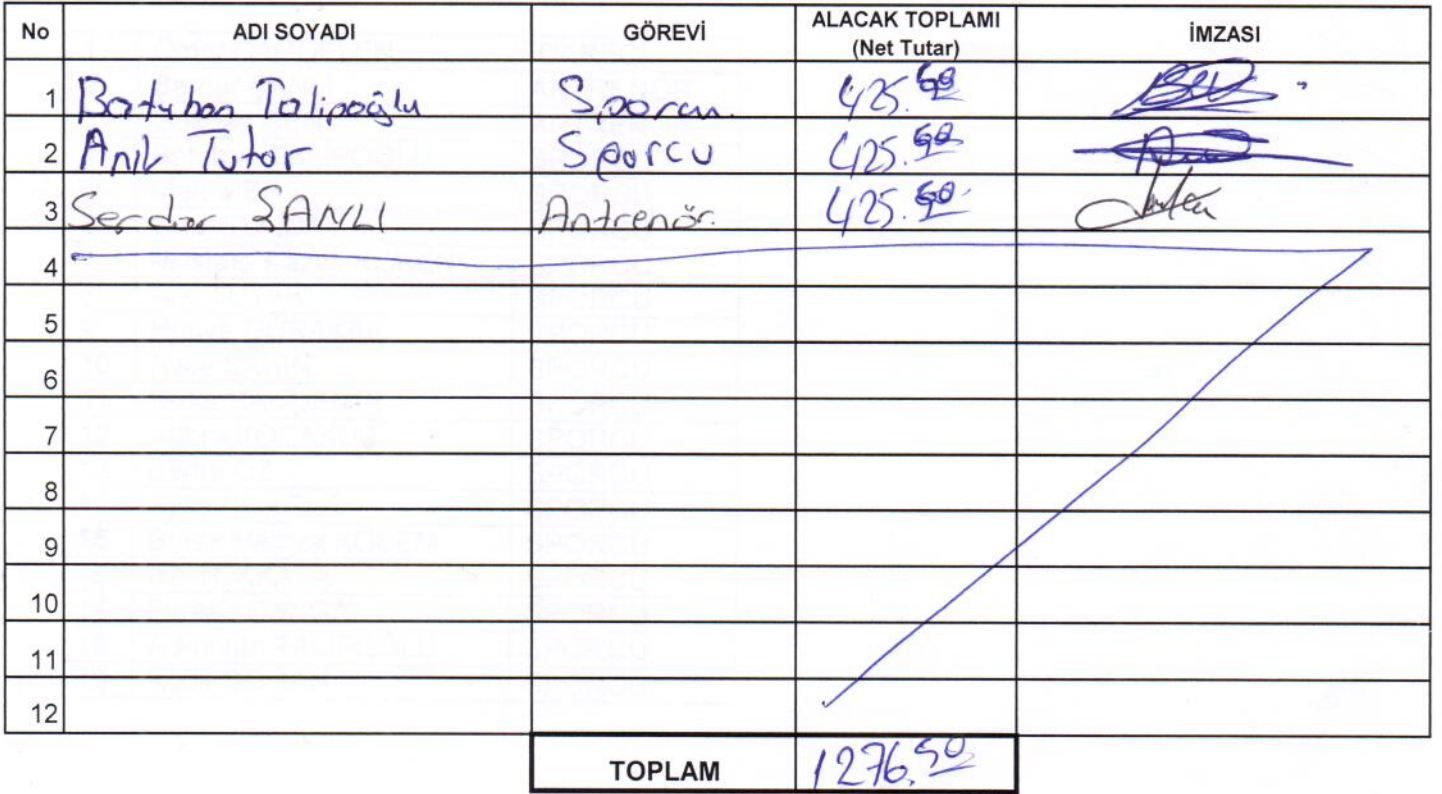 No ADI SOYADI GÖREVİ ALACAK TOPLAMI (Net Tutar) İMZASI
1 Batuhan Talipoğlu Sporcu 425.50
2 Anıl Tutar Sporcu 425.50
3 Serdar ŞANLI Antrenör. 425.50
4
5
6
7
8
9
10
11
12
TOPLAM 1276,50